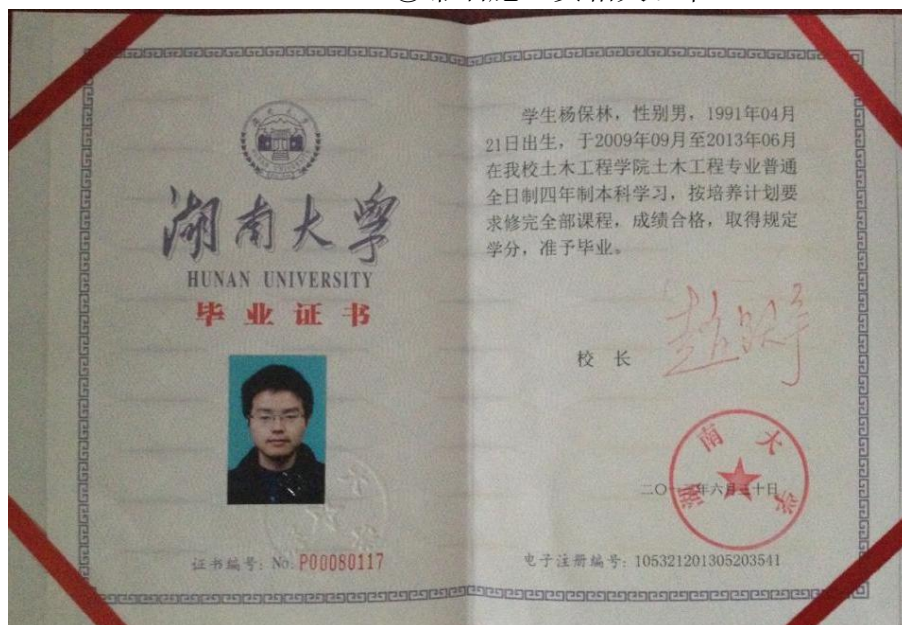 湖南大学
HUNAN UNIVERSITY
毕业证书
证书编号: No: P00080117
学生杨保林，性别男，1991年04月
21日出生，于2009年09月至2013年06月
在我校土木工程学院土木工程专业普通
全日制四年制本科学习，按培养计划要
求修完全部课程，成绩合格，取得规定
学分，准予毕业。
校 长
湖南大学
二〇一三年六月三十日
电子注册编号: 105321201305203541